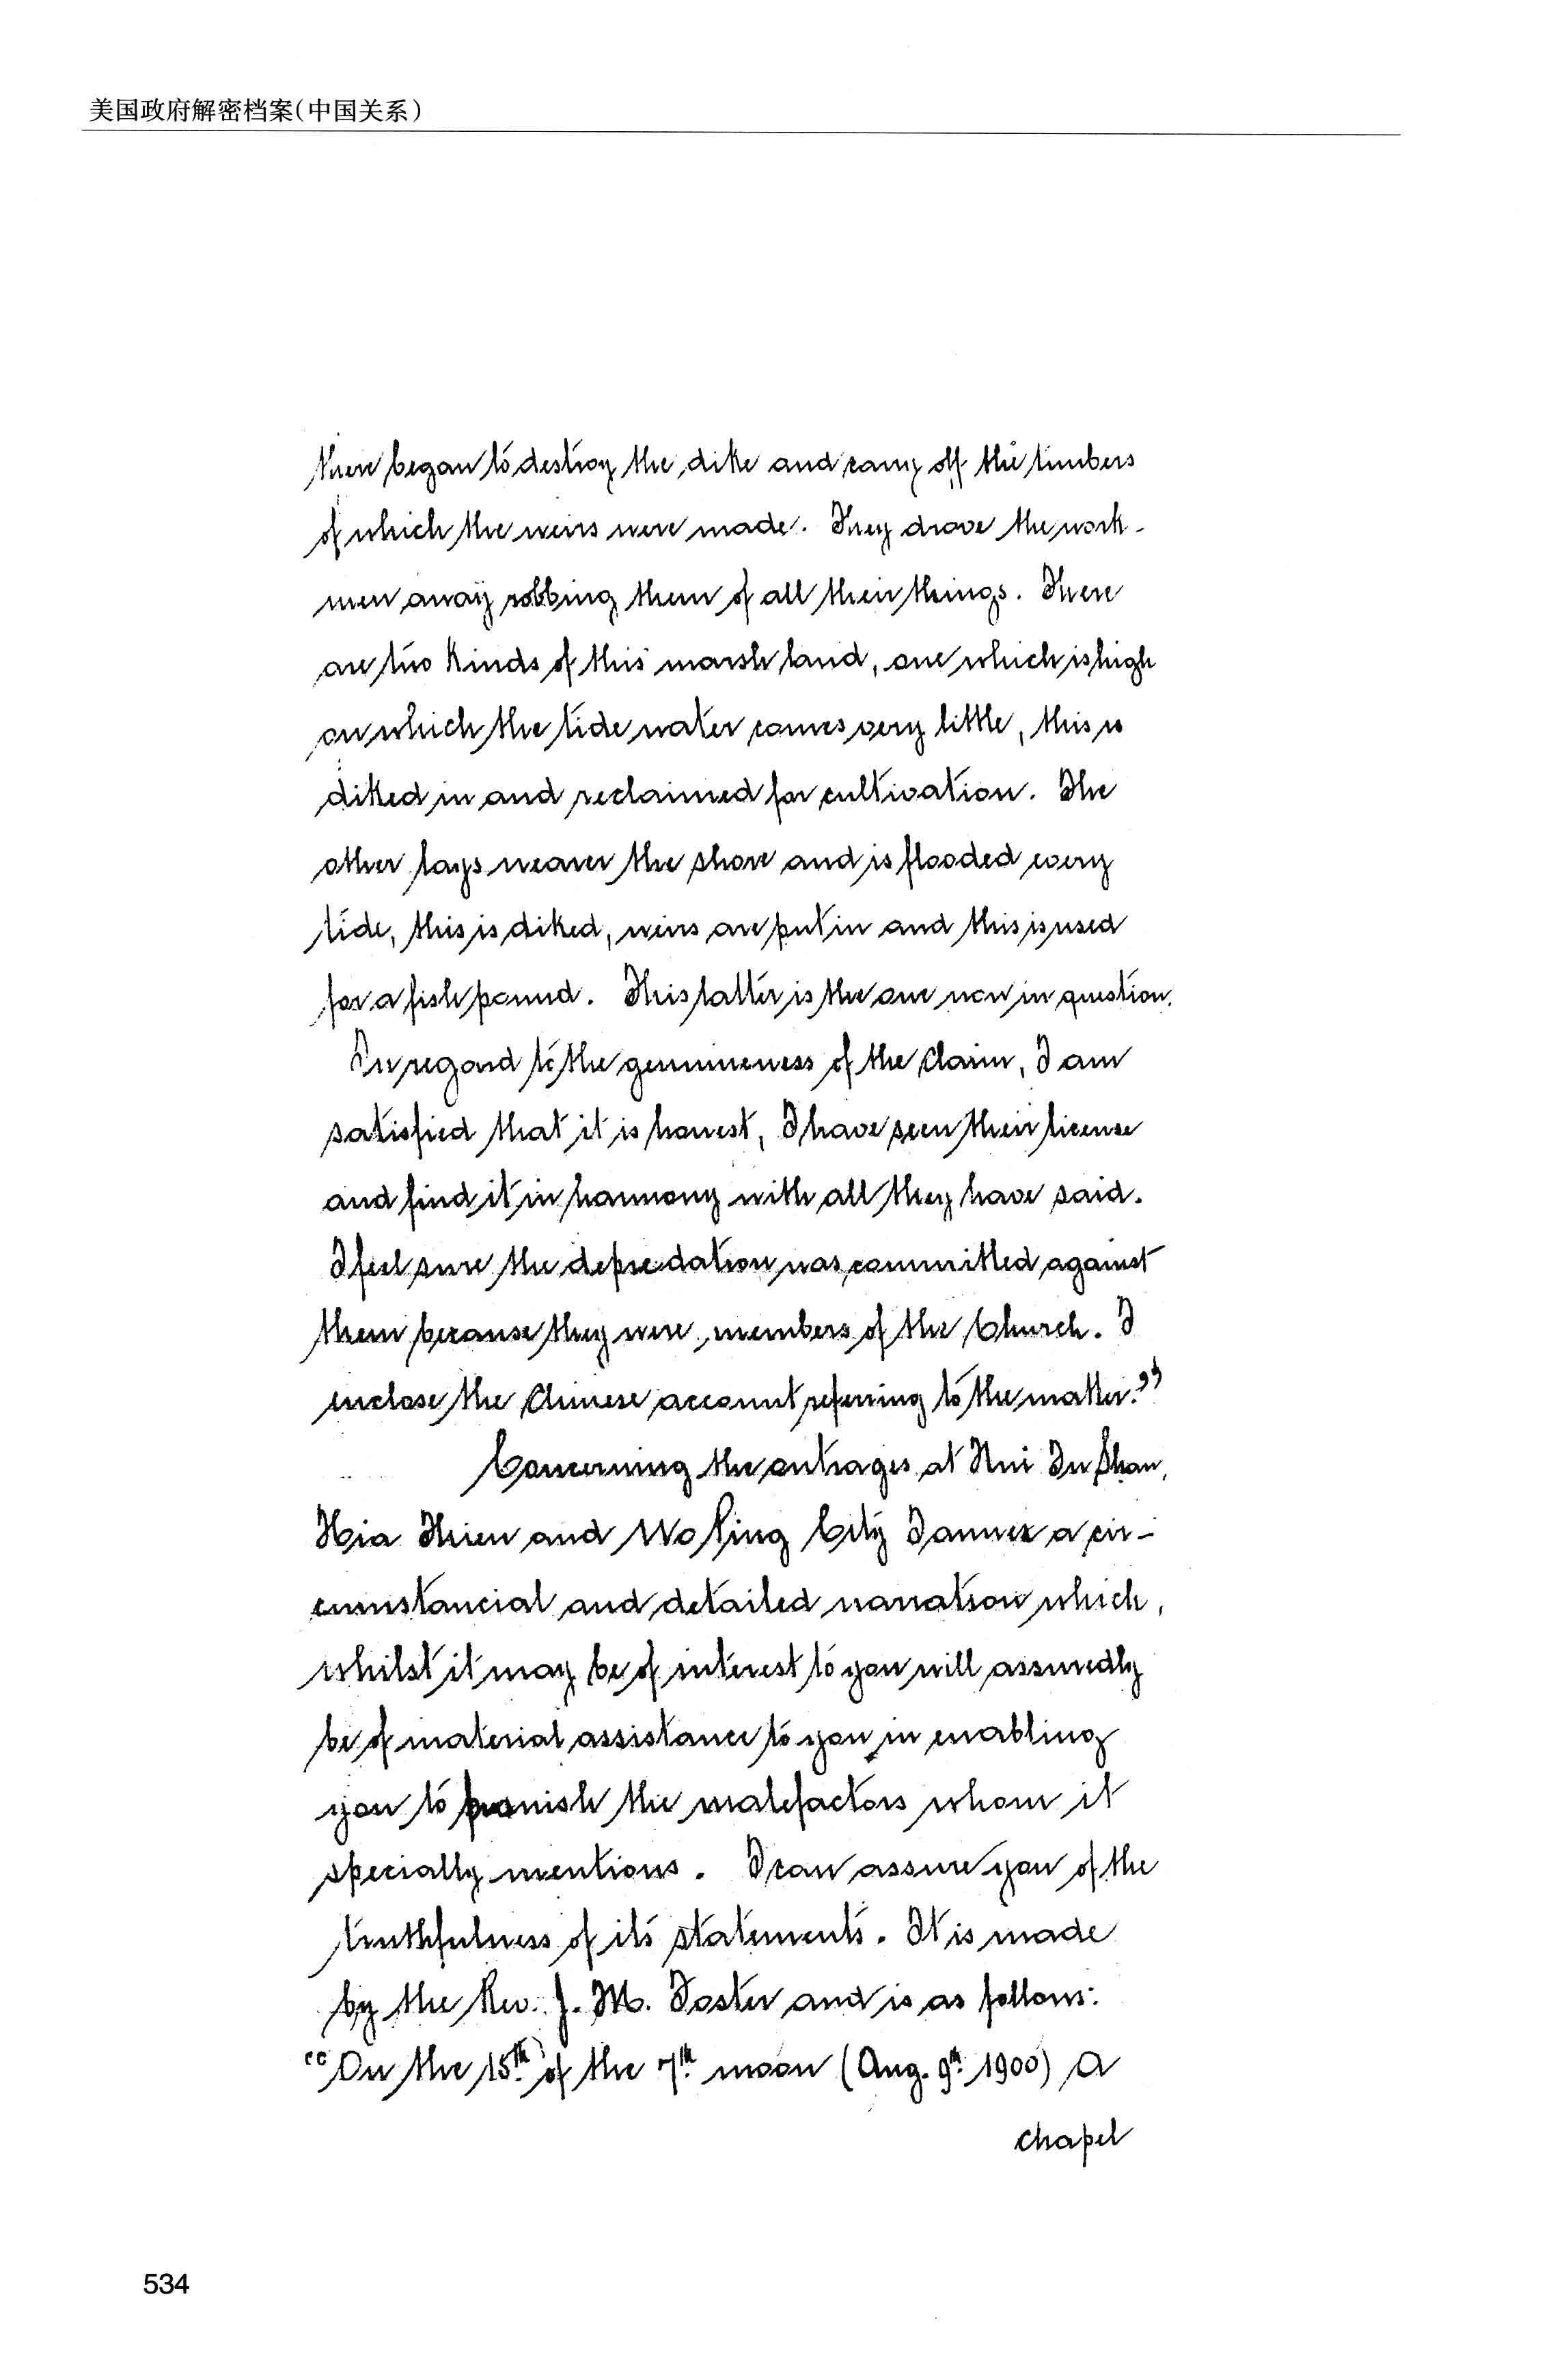 美国政府解密档案(中国关系)
then began to destroy the dike and carry off the timbers
of which the weirs were made. They drove the work-
men away robbing them of all their things. There
are two kinds of this marsh land, one which is high
on which the tide water comes very little, this is
diked in and reclaimed for cultivation. The
other lays nearer the shore and is flooded every
tide, this is diked, weirs are put in and this is used
for a fish pound. This latter is the one now in question.
In regard to the genuineness of the claim, I am
satisfied that it is honest, I have seen their license
and find it in harmony with all they have said.
I feel sure the depredation was committed against
them because they were members of the Church. I
enclose the Chinese account referring to the matter."
Concerning the outrages at
and City I annex a cir-
cumstancial and detailed narration which,
whilst it may be of interest to you will assuredly
be of material assistance to you in enabling
you to punish the malefactors whom it
specially mentions. I can assure you of the
truthfulness of its statements. It is made
by the Rev. J. M. Foster and is as follows:
"On the 15th of the 7th moon (Aug. 9th 1900) a
chapel
534